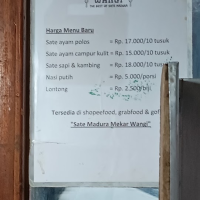 WANGI
Harga Menu Baru
Sate ayam polos = Rp. 17.000/10 tusuk
Sate ayam campur kulit = Rp. 15.000/10 tusuk
Sate sapi & kambing = Rp. 18.000/10 tusuk
Nasi putih = Rp. 5.000/porsi
Lontong = Rp. 2.500/biji
Tersedia di shopeefood, grabfood & gof
"Sate Madura Mekar Wangi"